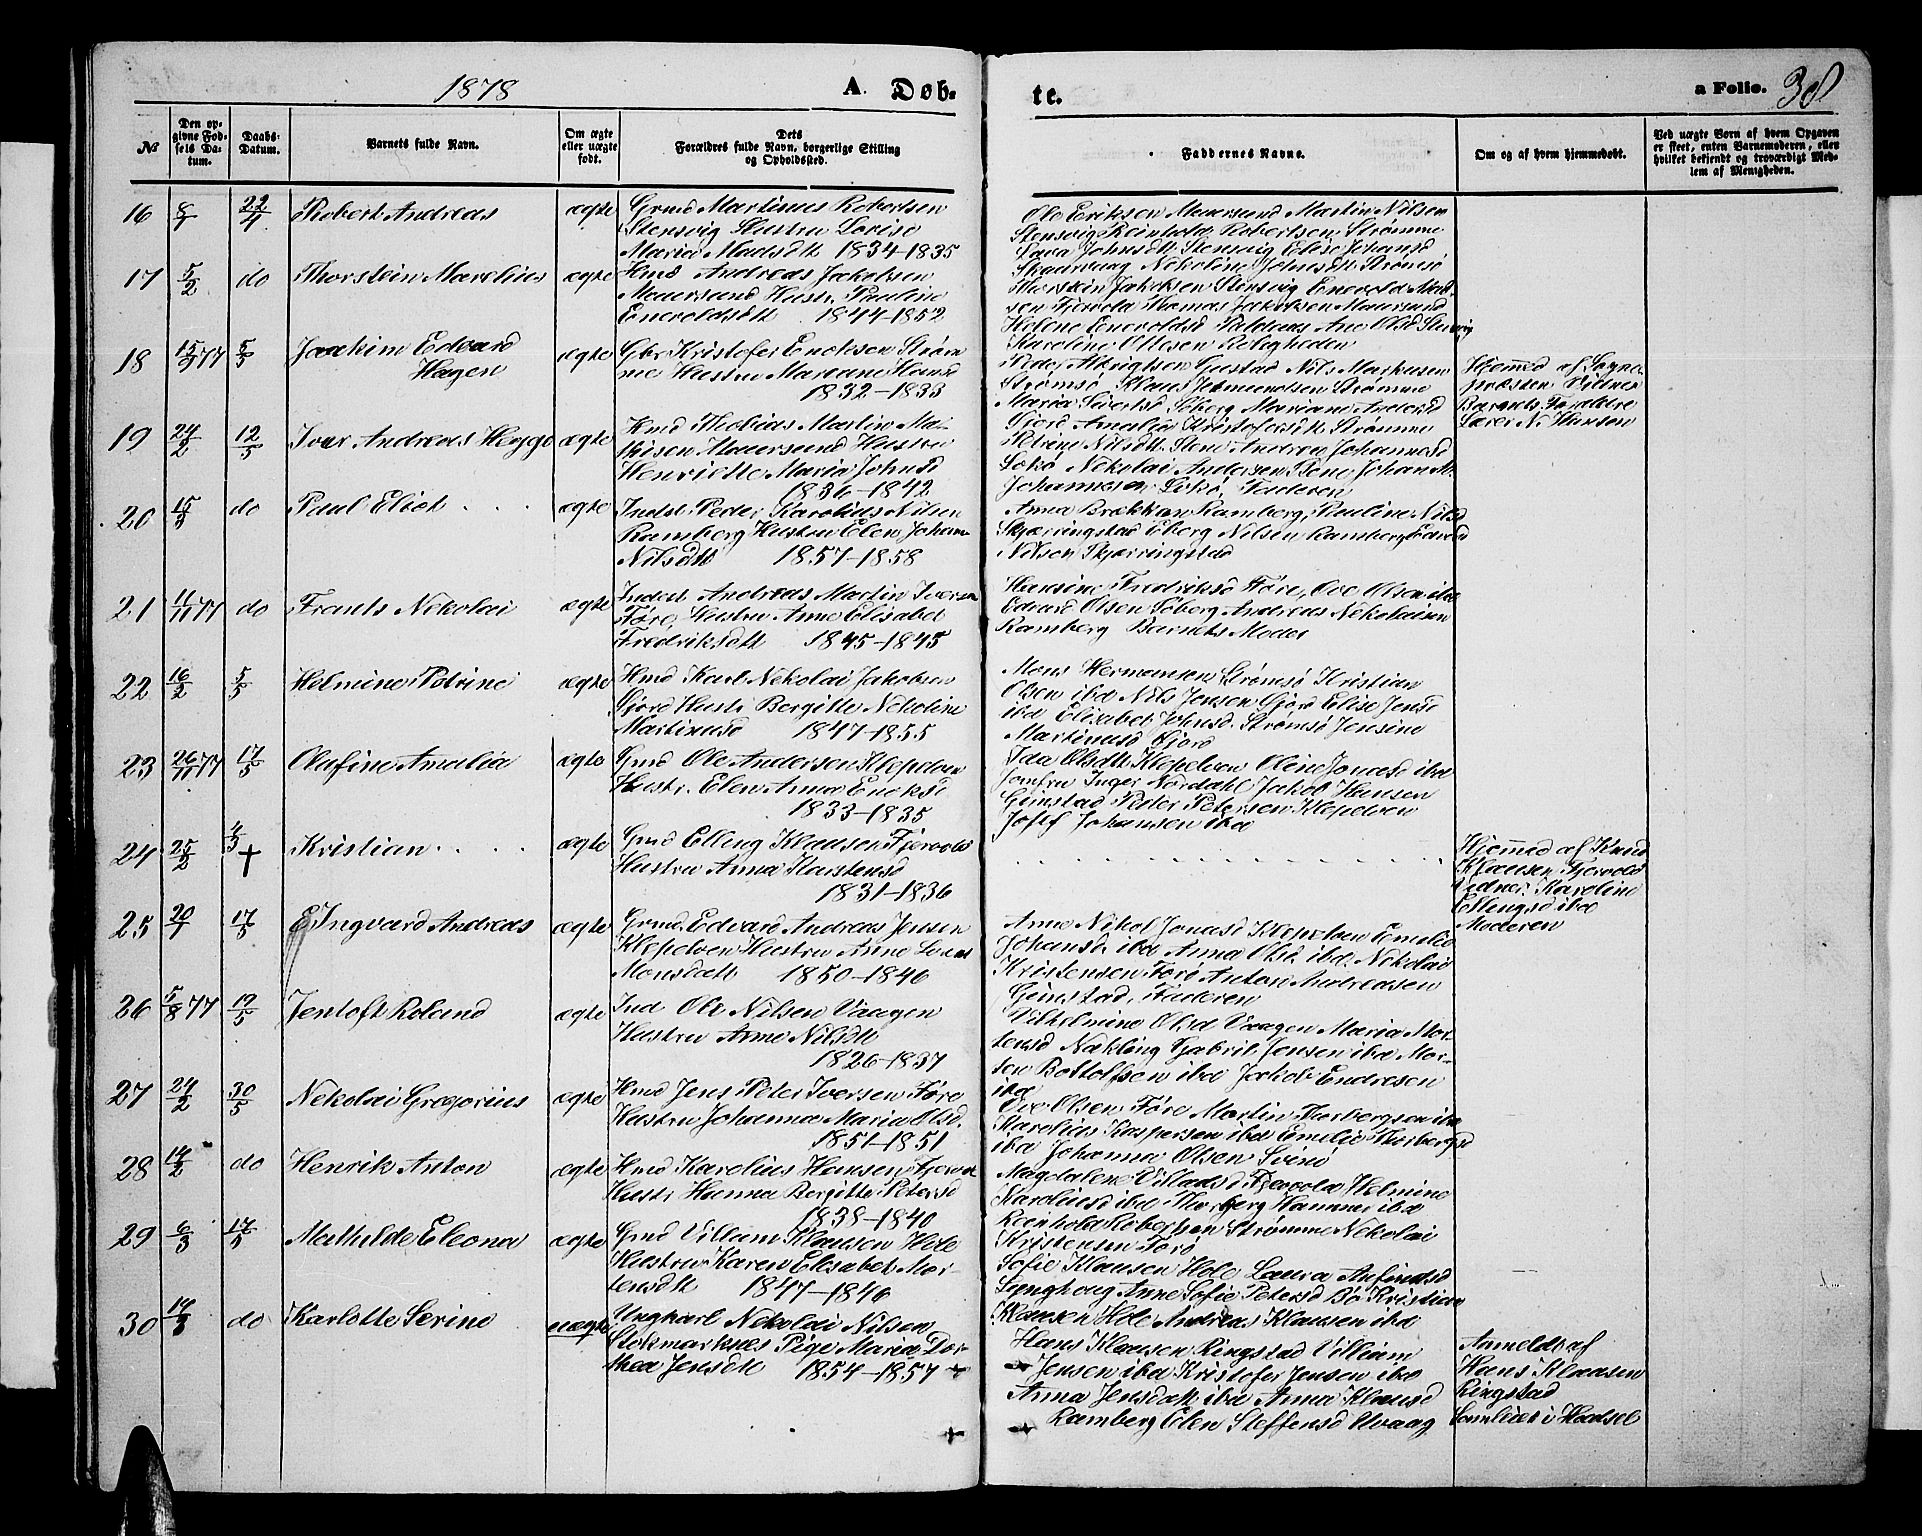 1878
A. Døb-
te.
a Folio. 38
No
Den op-
givne Fød-
sels Da-
tum.
Daabs-
Datum.
Barnets fulde Navn.
Om ægte
eller uægte
født.
Dets
Forældres fulde Navn, borgerlige Stilling
og Opholdssted.
Faddernes Navne.
Om og af hvem hjemmedøbt.
Ved uægte Børn af hvem Opgaven
er skeet, enten Barnemoderen, eller
hvilket bekjendt og troværdigt Med-
lem af Menigheden.
16 8/1 22/4 Robert Andreas ægte Grmd Martinus Robertsen
Stensvig Hustru Lovise
Maria Madsdtt 1834-1835
Ole Eriksen Maursund Martin Nilsen
Stensvig Reinhold Robertsen Strømme
Lava Johnsdtt Stensvig Elise Johansd
Skaarvaag Nekoline Johnsdtt Strømsø
17 5/2 do Thorstein Marelius ægte Hmd Andreas Jakobsen
Maursund Hustr. Pauline
Enevoldsdtt 1844-1852
Thorstein Jakobsen Stensvig Enevold Mad-
sen Fjervold Thomas Jakobsen Maursund
Helene Enevoldsd Ane Olsd Stensvig
Karoline Ottesen Roligheden
18 15/9 77 5/5 Joakim Edvard
Hagen ægte Gbr Kristofer Encksen Strøm-
me Hustru Mariane Hansd
1832-1833
Peder Gustad Nils Markusen
Strømsø Klaus Strømme
Maria Sivertsd Søberg Mariane Andersd
Gjord Amalia Kristofersdtt Strømme
Hjemmed af Sogne-
præsten Vidner
Barnets Forældre
Lærer N. Hansen
19 24/2 12/5 Ivar Andreas Heggo ægte Hmd Thobias Martin Ma-
thisen Maursund Hustru
Henriette Maria Johnsd
1836-1842
Petrine Nilsdtt Stene Andrea Johannesd
Sokø Nekolai Andersen Stene Johan M.
Johannesen Sokø, Faderen
20 15/3 do Paul Eliot . . . ægte Inderst Peder Karolius Nilsen
Ramberg Hustru Elen Johanna
Nilsdtt 1857-1858
Anna Brækkan Ramberg, Pauline Nilsd
Skjærringstad Eberg Nilsen Ramberg Edvard
Nilsen Skjærringstad
21 11/11 77 do Frants Nekolai ægte Inderst Andreas Martin Iversen
Føre, Hustru Anne Elisabet
Fredriksdtt 1845-1845
Hansine Fredriksd Føre, Ove Olsen ibd
Edvard Olsen Søberg Andreas Nekolaisen
Ramberg Barnets Moder
22 16/2 5/5 Helmine Petrine ægte Hmd Karl Nekolai Jakobsen
Gjord Hustr Bergitte Nekoline
Martinusd 1847-1855
Mons Hermansen Strømsø Kristian
Olsen ibd Nils Jensen Gjord Elise Jensd
ibd Elisabet Johnsd. Strømsø Jensine
Martinusd Gjord
23 26/11 77 17/5 Olufine Amalia ægte Grmd Ole Andersen Klepelven
Hustr. Elen Anna Encksd
1833-1835
Ida Olsdtt Klepelven Oline Jonasd ibd
Jomfru Inger Nordahl Jakob Hansen
Gimstad Peder Petersen Klepelven
Josef Johansen ibd
24 25/2 4/3 + Kristian . . . . ægte Grmd Elling Klausen Fjervold
Hustru Anna Karstensd
1831-1836
Hjemmed af Knud
Klausen Fjervold
Vidner: Karoline
Ellingsd ibd
Moderen
25 20/1 17/5 E Ingvard Andreas ægte Grmd. Edvard Andreas Jensen
Klepelven Hustru Anne Lovise
Monsdatt 1850-1846
Anne Nikol Jonasd Klepelven Emelie
Johansd. ibd Anna Olsd. ibd. Nikolai
Kristensen Førø Anton Andreasen
Gimstad, Faderen
26 5/8 77 12/5 Jentoft Roland ægte Ind Ole Nilsen Vaagen
Hustru Anne Nilsdtt
1826-1837
Vilhelmine Olsd Vaagen Maria Mor-
tensd Nækling Gabriel Jensen ibd Mor-
ten Bottolfsen ibd Jakob Endresen
ibd
27 24/2 30/5 Nekolai Gregorius ægte Hmd Jens Peter Iversen Føre
Hustru Johanna Maria Olsd.
1851-1851
Ove Olsen Føre Martin Thorbergsen ibd
Karolius Kaspersen ibd Emelie Thorbergsd
ibd Johanna Olsen Svinø
28 14/2 do Henrik Anton ægte Hmd Karolius Hansen Fjervold
Hustr Hanna Bergitte Petersd
1838-1840
Magdalene Villadsd Fjervold Helmine
Karoliusd ibd Thorberg Hammer ibd
Reinhold Robertsen Strømme Nekolai
Kristensen Førø
29 6/3 17/5 Mathilde Eleona ægte Grmd Villum Klausen Hole
Hustru Karen Elisabet Mor-
tensdtt 1847-1846
Sofie Klausen Hole Laura Anfinsd
Lynghoug Anne Sofie Petersd Bø Kristian
Klausen Hole Andreas Klausen ibd
30 14/3 do Karlotte Serine uægte Ungkarl Nekolai Nilsen
Stokmarknes Pige Maria Dor-
thea Jensdtt 1854-1857
Hans Klausen Ringstad Villiam
Jensen ibd Kristofer Jensen ibd
Anna Jensdatt ibd Anna Klausd
Ramberg Elen Steffensd Uvaag
Anmeldt af
Hans Klausen
Ringstad
Samleiet i Hadsel